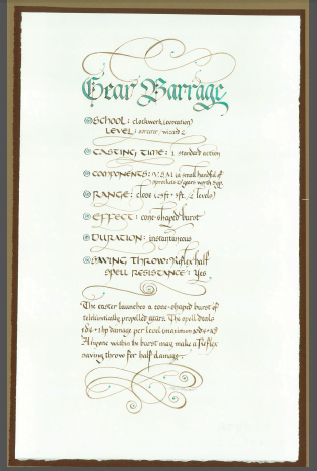 Gear Barrage
SCHOOL: clockwork (evocation)
LEVEL: sorcerer, wizard 2
CASTING TIME: 1 standard action
COMPONENTS: V, S, M (a small handful of
sprockets & gears worth
RANGE: close (25ft + 5ft/2 levels)
EFFECT: cone-shaped burst
DURATION: instantaneous
SAVING THROW: Reflex half
SPELL RESISTANCE: yes
The caster launches a cone-shaped burst of
telekinetically propelled gears. The spell deals
1d4+1hp damage per level (maximum 10d4+10)
Anyone within the burst may make a Reflex
saving throw for half damage.